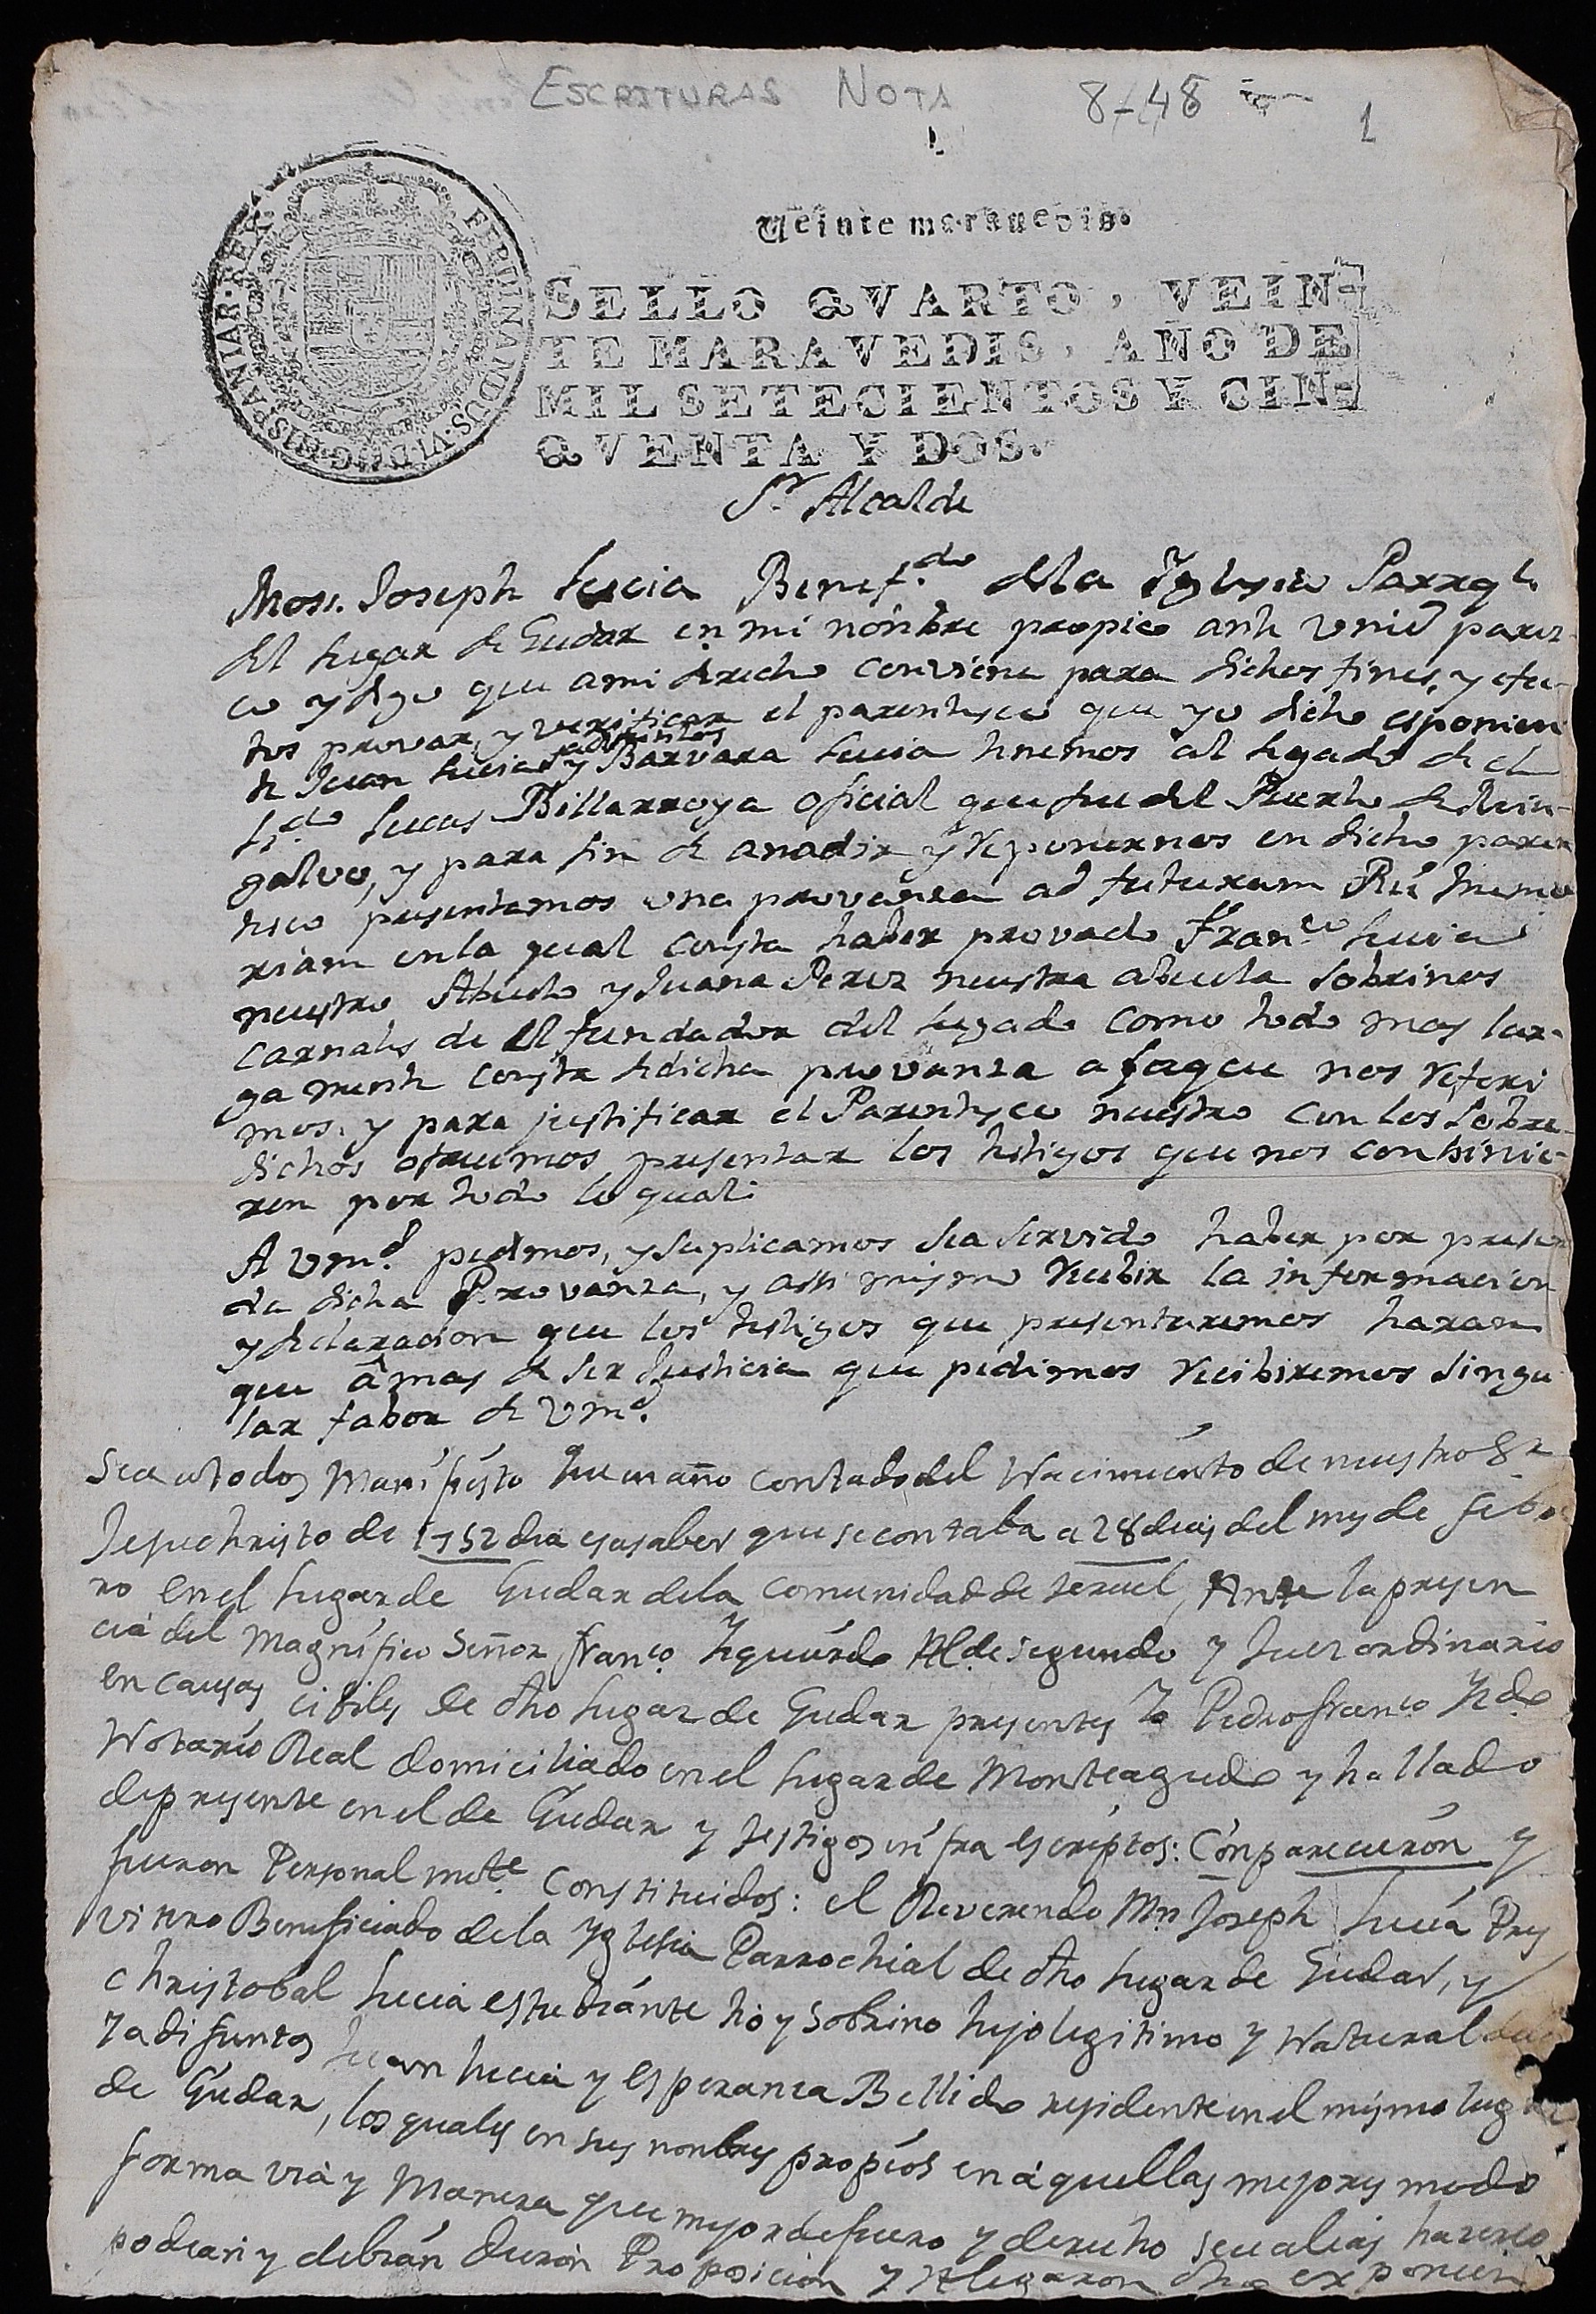 ESCRITURAS NOTA 8-48
1
Veinte marauedis.
FERDINANDUS·VI·D·G·HISPANIAR·REX
SELLO QVARTO, VEIN-
TE MARAVEDIS, AÑO DE
MIL SETECIENTOS Y CIN-
QVENTA Y DOS.
Sr. Alcalde
Mosn. Joseph Lucia Benef.do dela Yglesia Parrql.
del Lugar de Gudar en mi nonbre propio ante vmd parez-
co y digo que a mi drecho conviene para dichos fines, y efec-
tos provar, y verificar el parentesco que yo dicho esponien
te Juan Lucia y Barvara Lucia tenemos al legado de el
L.do Lucas Billarroya oficial que fue del Puerto de
galvo, y para fin de anadir y reponernos en dicho paren
tesco presentamos una provanza ad futuram Rei memo
riam en la qual consta haber provado Fran.co Lucia
nuestro Abuelo y Juana Perez nuestra abuela sobrinos
carnales de el fundador del legado como todo mas lar-
gamente consta dedicha provanza a que nos referi
mos, y para justificar el Parentesco nuestro con los sobre-
dichos ofrecemos presentar los testigos que nos conbinie-
ren por todo lo qual:
A vmd. pedimos, y suplicamos sea servido haber por presen
da dicha Provanza, y assi mismo recibir la informacion
y declaracion que los testigos que presentaremos haran
que â mas de ser Justicia que pedimos recibiremos singu
lar fabor de vmd.
Sea atodos Manifiesto que en año contado del Nacimiento de nuestro Sr
Jesuchristo de 1752 dia es asaber que se contaba a 28 dias del mes de Febre
ro en el Lugar de Gudar dela comunidad de teruel, Ante la presen
cia del Magnifico Señor Franco. Yzquierdo Alde. segundo y Juez ordinario
en causas cibiles de dho Lugar de Gudar presentes Yo Pedro franco Yzdo
Notario Real domiciliado en el Lugar de Monteagudo y hallado
depresente en el de Gudar y testigos infra escriptos: Conparecieron y
fueron Personalmte. Constituidos: el Reverendo Mn Joseph Lucia Pres
vitero Beneficiado dela Yglesia Parrochial de dho Lugar de Gudar, y
Christobal Lucia estudiante tio y sobrino hijo legitimo y Natural
ya difuntos Juan Lucia y Esperanza Bellido residente en el mismo lugar
de Gudar, los quales en sus nonbres propios en aquellas mejores modo
forma via y Manera que mejor de fuero y derecho seu alias hazerlo
podian y debian dieron Proposicion y Alegaron dho exponien